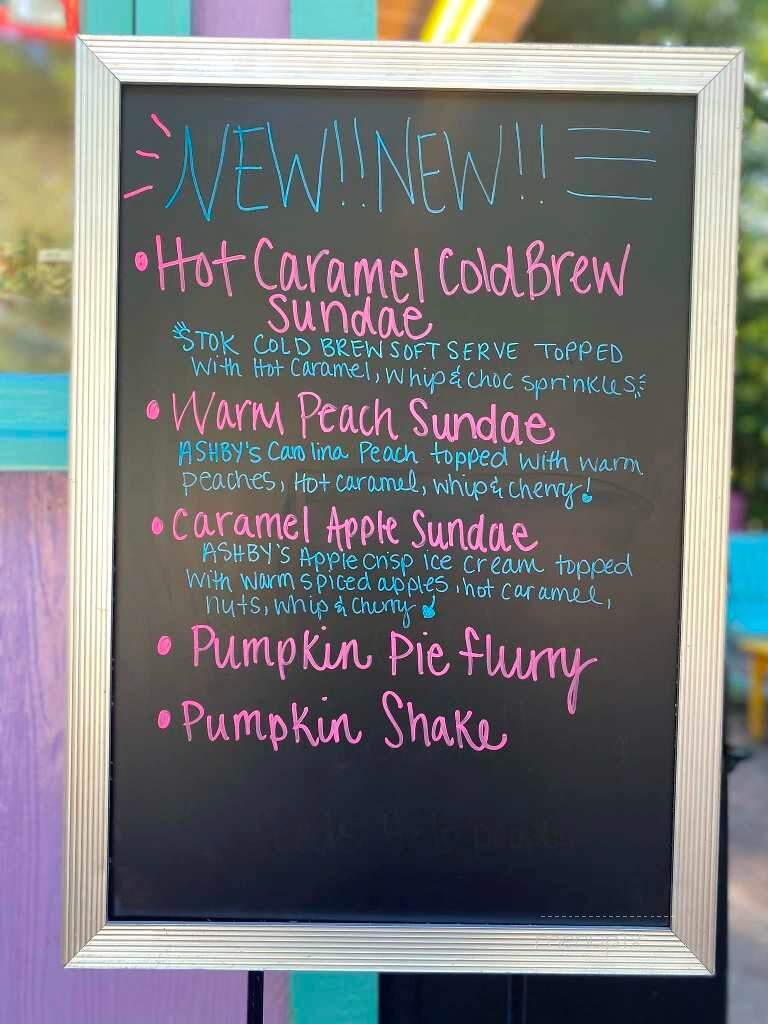 NEW!! NEW!!
• Hot Caramel Cold Brew
Sundae
STOK COLD BREW SOFT SERVE TOPPED
With Hot Caramel, whip & choc sprinkles
• Warm Peach Sundae
ASHBY'S Carolina Peach topped with warm
peaches, Hot caramel, whip & cherry!
• Caramel Apple Sundae
ASHBY'S Apple crisp ice cream topped
with warm spiced apples, hot caramel,
nuts, whip & cherry
• Pumpkin Pie flurry
• Pumpkin Shake